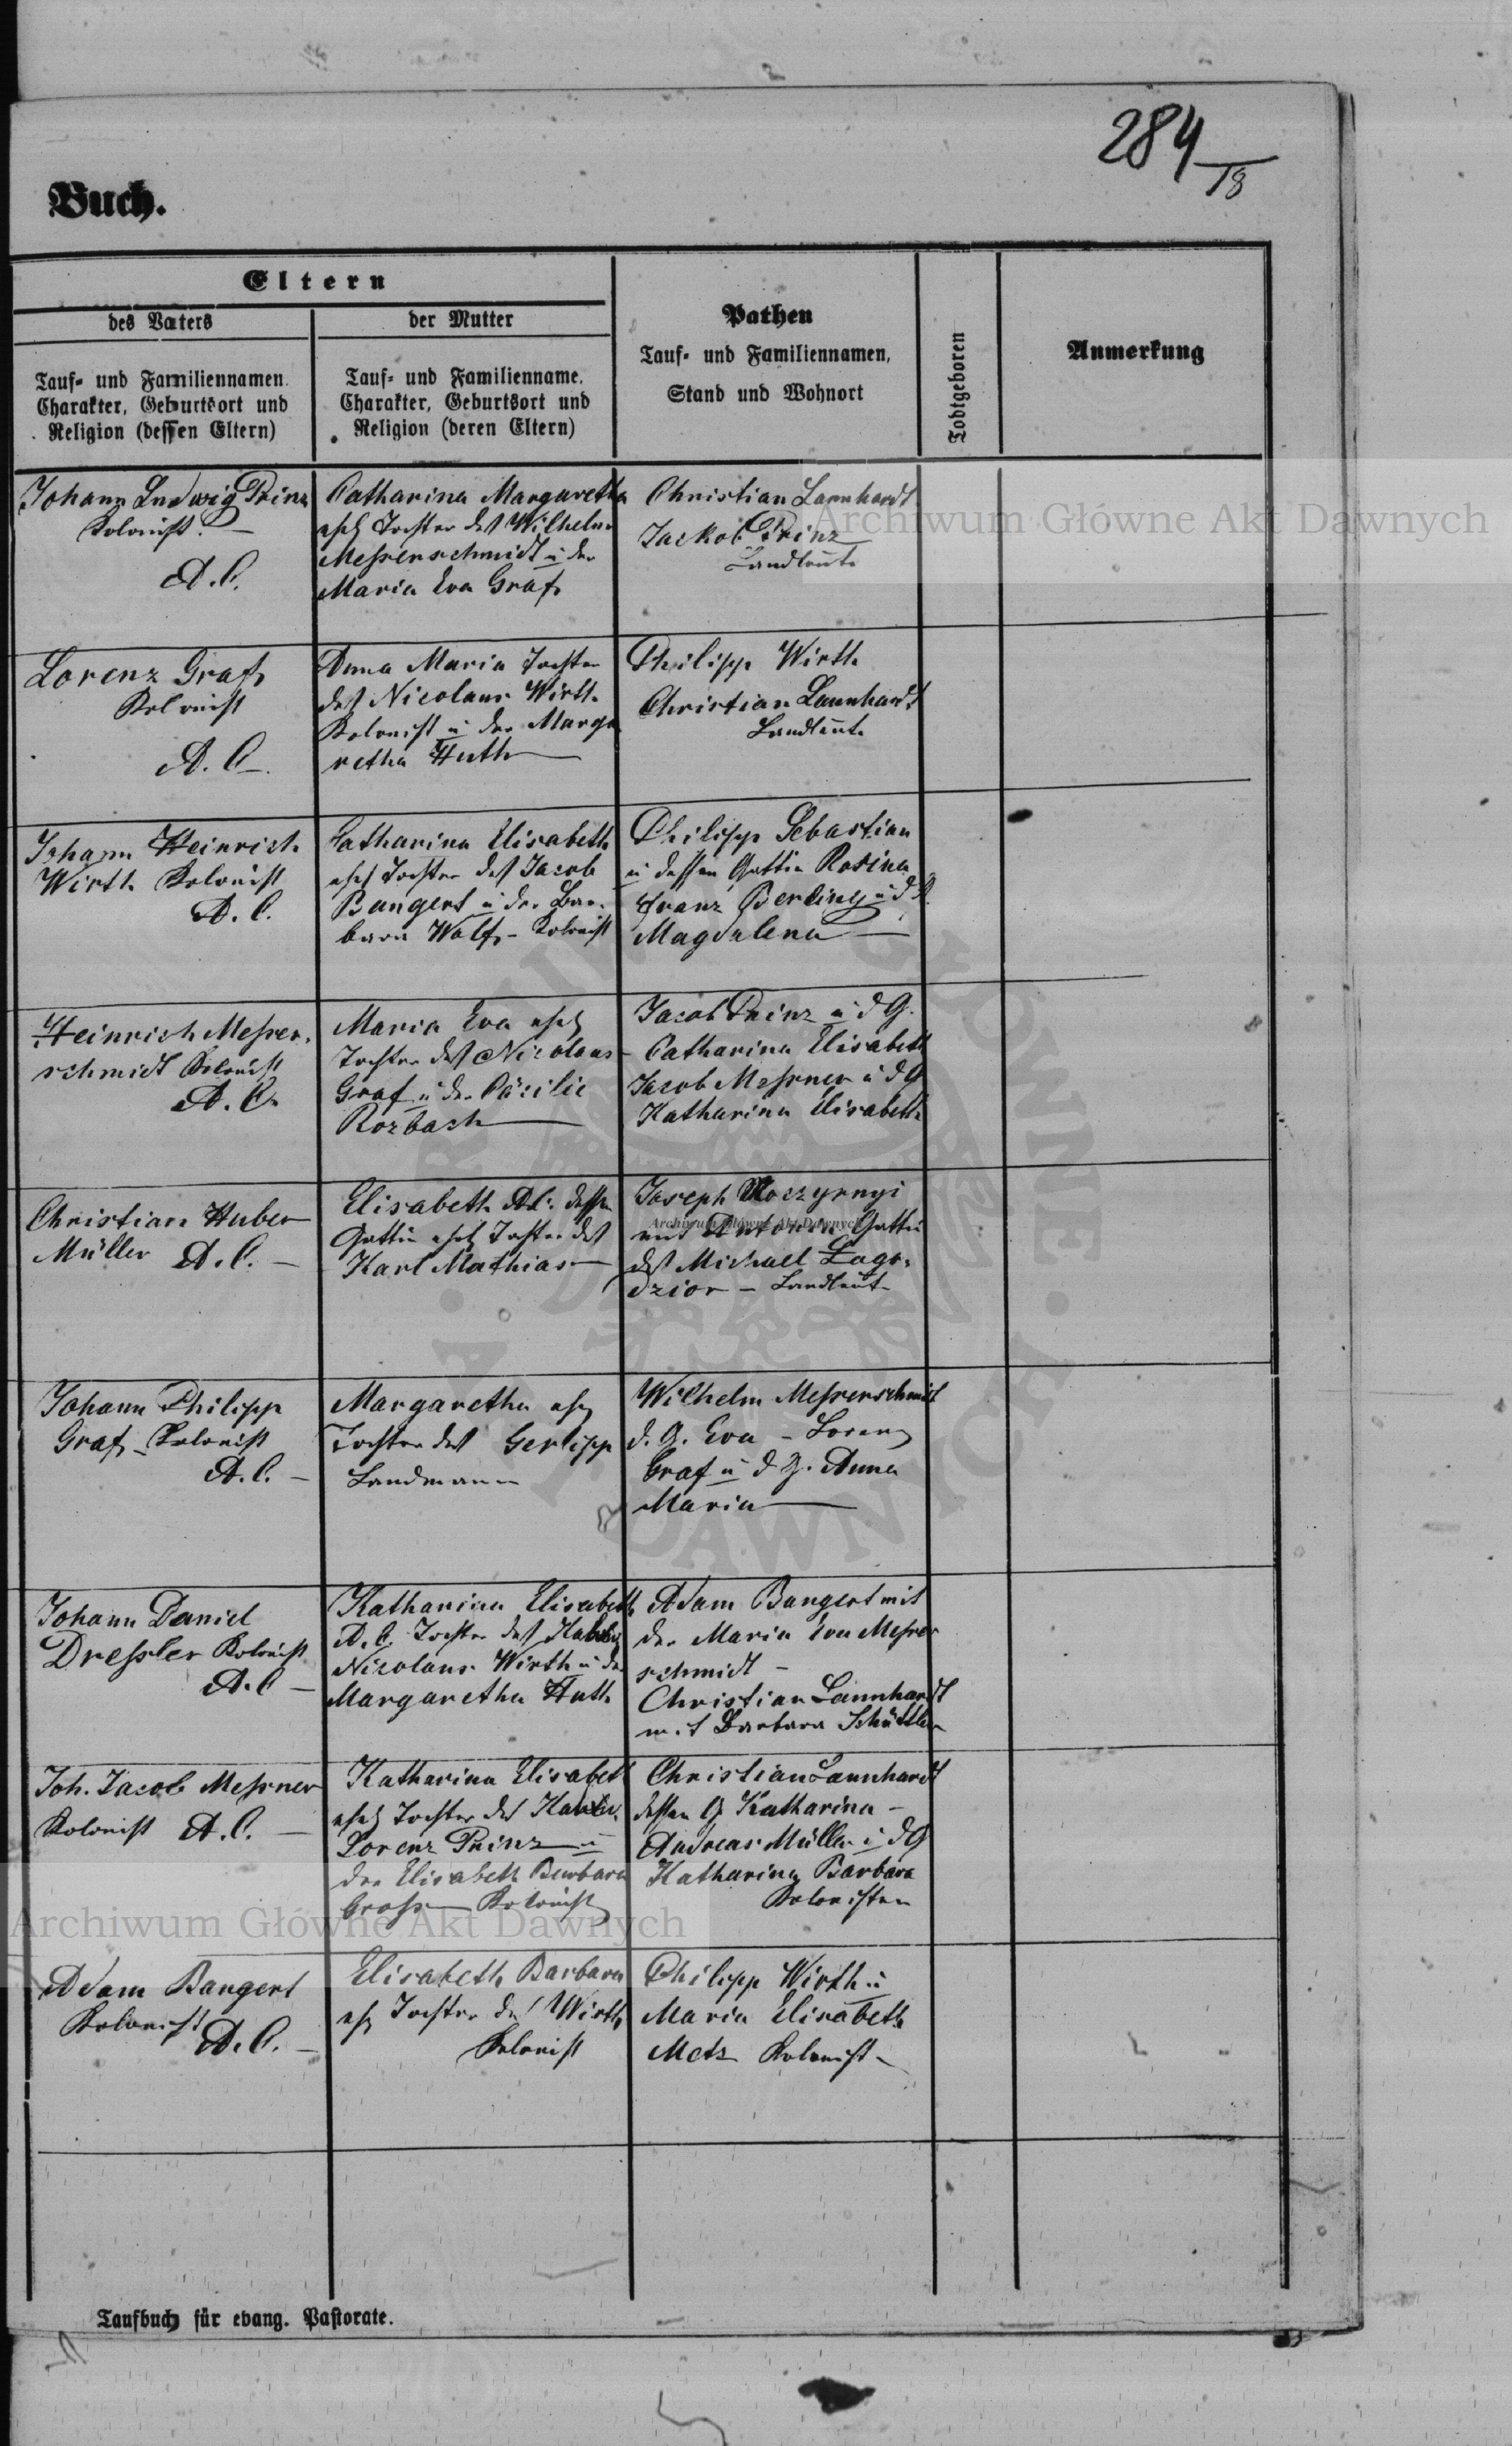 284/18
Buch.
Eltern
des Vaters
der Mutter
Pathen
Todtgeboren
Anmerkung
Tauf- und Familiennamen.
Charakter, Geburtsort und
Religion (dessen Eltern)
Tauf- und Familienname.
Charakter, Geburtsort und
Religion (deren Eltern)
Tauf- und Familiennamen,
Stand und Wohnort
Johann Ludwig Prinz
Kolonist. —
A. C.
Catharina Margaretha
ehel Tochter des Wilhelm
Messerschmidt u der
Maria Eva Graf
Christian Lannhardt
Jackob Prinz
Landleute
Lorenz Graf
Kolonist
A. C.
Anna Maria Tochter
des Nicolaus Wirth
Kolonist u der Marga
retha Huth
Philipp Wirth
Christian Lannhardt
Landleute
Johann Heinrich
Wirth Kolonist
A. C.
Catharina Elisabeth
ehel Tochter des Jacob
Bangert u der Bar-
bara Wolf - Kolonist
Philipp Sebastian
u dessen Gattin Rosina
Franz Berling u d G.
Magdalena
Heinrich Messer-
schmidt Kolonist
A. C.
Maria Eva ehel
Tochter des Nicolaus
Graf u der Cäcilie
Rozbach
Jacob Prinz u d G.
Catharina Elisabeth
Jacob Messner u d G
Katharina Elisabeth
Christian Huber
Müller A. C. —
Elisabeth A.C. dessen
Gattin ehel Tochter des
Karl Mathias
Joseph Moczyrnyi
mit Antonia Gattin
des Michael Lago-
dzior — Landleute
Johann Philipp
Graf - Kolonist
A. C. —
Margaretha ehel
Tochter des Gerlipp
Landmann
Wilhelm Messerschmidt
d. G. Eva - Lorenz
Graf u d G. Anna
Maria
Johann Daniel
Dressler Kolonist
A. C —
Katharina Elisabeth
A. C. Tochter des
Nicolaus Wirth u der
Margaretha Huth
Adam Bangert mit
der Maria Eva Messer
schmidt —
Christian Lannhardt
mit Barbara Schüttler
Joh. Jacob Messner
Kolonist A. C. —
Katharina Elisabeth
ehel Tochter des
Lorenz Prinz u
der Elisabeth Barbara
Gross Kolonist
Christian Lannhardt
dessen G Katharina —
Andreas Müller u d G
Katharina Barbara
Kolonisten
Adam Bangert
Kolonist A. C. —
Elisabeth Barbara
ehel Tochter des Wirth
Kolonist
Philipp Wirth u
Maria Elisabeth
Metz Kolonist
Taufbuch für evang. Pastorate.
Archiwum Główne Akt Dawnych
Archiwum Główne Akt Dawnych
Archiwum Główne Akt Dawnych